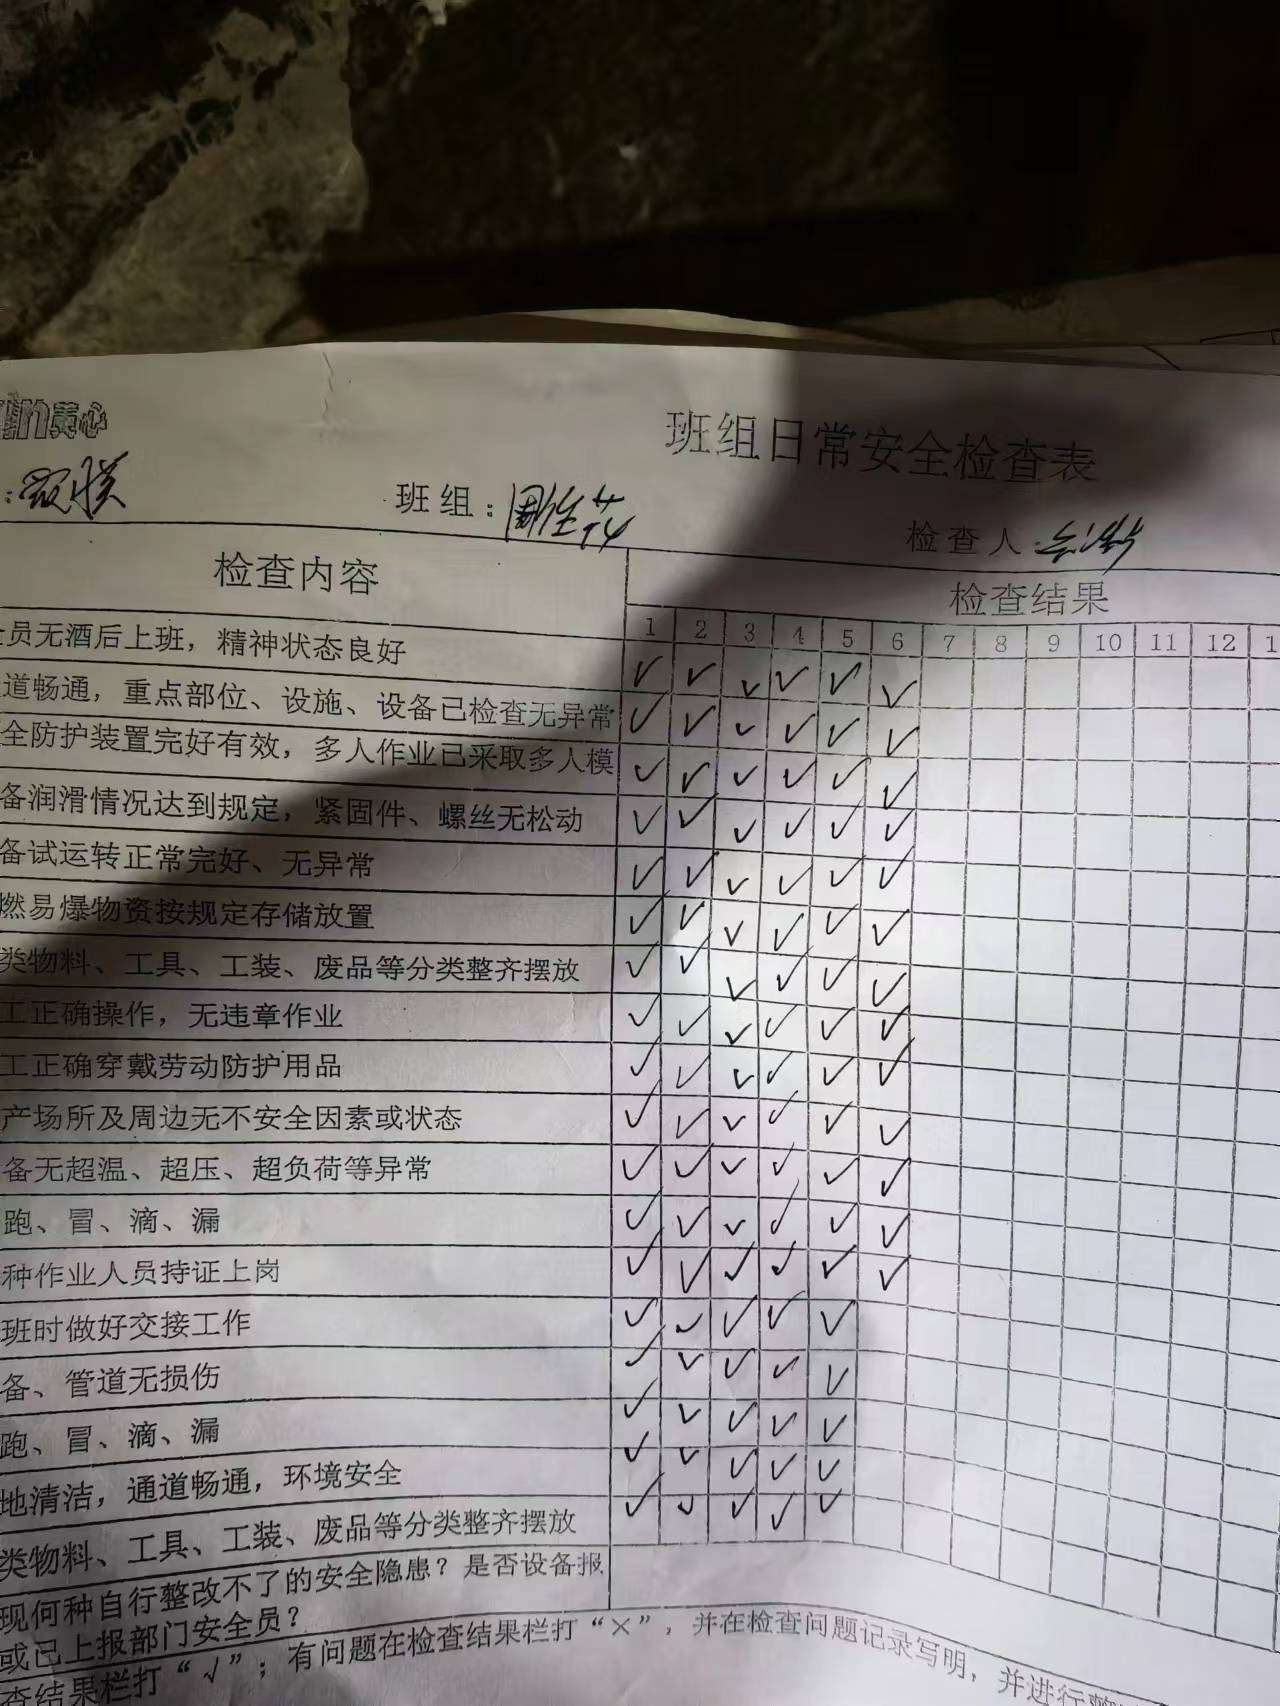 黄心
班组日常安全检查表
班组：
检查人
检查内容
检查结果
1 2 3 4 5 6 7 8 9 10 11 12 1
员无酒后上班，精神状态良好 ✓ ✓ ✓ ✓ ✓ ✓
道畅通，重点部位、设施、设备已检查无异常 ✓ ✓ ✓ ✓ ✓ ✓
全防护装置完好有效，多人作业已采取多人模 ✓ ✓ ✓ ✓ ✓ ✓
备润滑情况达到规定，紧固件、螺丝无松动 ✓ ✓ ✓ ✓ ✓ ✓
备试运转正常完好、无异常 ✓ ✓ ✓ ✓ ✓ ✓
燃易爆物资按规定存储放置 ✓ ✓ ✓ ✓ ✓ ✓
类物料、工具、工装、废品等分类整齐摆放 ✓ ✓ ✓ ✓ ✓ ✓
工正确操作，无违章作业 ✓ ✓ ✓ ✓ ✓ ✓
工正确穿戴劳动防护用品 ✓ ✓ ✓ ✓ ✓ ✓
产场所及周边无不安全因素或状态 ✓ ✓ ✓ ✓ ✓ ✓
备无超温、超压、超负荷等异常 ✓ ✓ ✓ ✓ ✓ ✓
跑、冒、滴、漏 ✓ ✓ ✓ ✓ ✓ ✓
种作业人员持证上岗 ✓ ✓ ✓ ✓ ✓ ✓
班时做好交接工作 ✓ ✓ ✓ ✓ ✓
备、管道无损伤 ✓ ✓ ✓ ✓ ✓
跑、冒、滴、漏 ✓ ✓ ✓ ✓ ✓
地清洁，通道畅通，环境安全 ✓ ✓ ✓ ✓ ✓
类物料、工具、工装、废品等分类整齐摆放 ✓ ✓ ✓ ✓ ✓
现何种自行整改不了的安全隐患？是否设备报
或已上报部门安全员？
查结果栏打“√”；有问题在检查结果栏打“×”，并在检查问题记录写明，并进行整